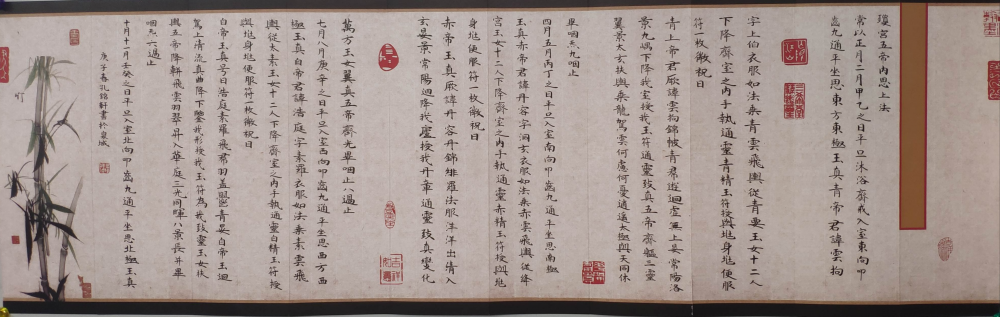 瓊宮五帝內思上法
常以正月二月甲乙之日平旦沐浴齋戒入室東向叩
齒九通平坐思東方東極玉真青帝君諱雲拘
字上伯衣服如法乘青雲飛輿從青要玉女十二人
下降齋室之內手執通靈青精玉符授與兆身兆便服
符一枚微祝曰
青上帝君厥諱雲拘錦帔青帬遊迴虛無上晏常陽洛
景九嵎下降我室授我玉符通靈致真五帝齊軀三靈
翼景太玄扶輿乘龍駕雲何慮何憂遨遊太極與天同休
畢咽炁九咽止
四月五月丙丁之日平旦入室南向叩齒九通平坐思南極
玉真赤帝君諱丹容字洞玄衣服如法乘赤雲飛輿從絳
宮玉女十二人下降齋室之內手執通靈赤精玉符授與兆
身兆便服符一枚微祝曰
赤帝玉真厥諱丹容丹錦緋羅法服洋洋出清入
玄晏景常陽迴降我廬授我丹章通靈致真變化
萬方玉女翼真五帝齊光畢咽止八過止
七月八月庚辛之日平旦入室西向叩齒九通平坐思西方西
極玉真白帝君諱浩庭字素羅衣服如法乘素雲飛
輿從太素玉女十二人下降齋室之內手執通靈白精玉符授
與兆身兆便服符一枚微祝曰
白帝玉真号曰浩庭素羅飛帬羽蓋青晏白帝玉迴
駕上清流真曲降下鑒我形授我玉符為我致靈玉女扶
輿五帝降軿飛雲羽翠昇入華庭三光同暉八景長并畢
咽炁六過止
十月十一月壬癸之日平旦入室北向叩齒九通平坐思北極玉真
庚子春孔鎔軒書於泉城